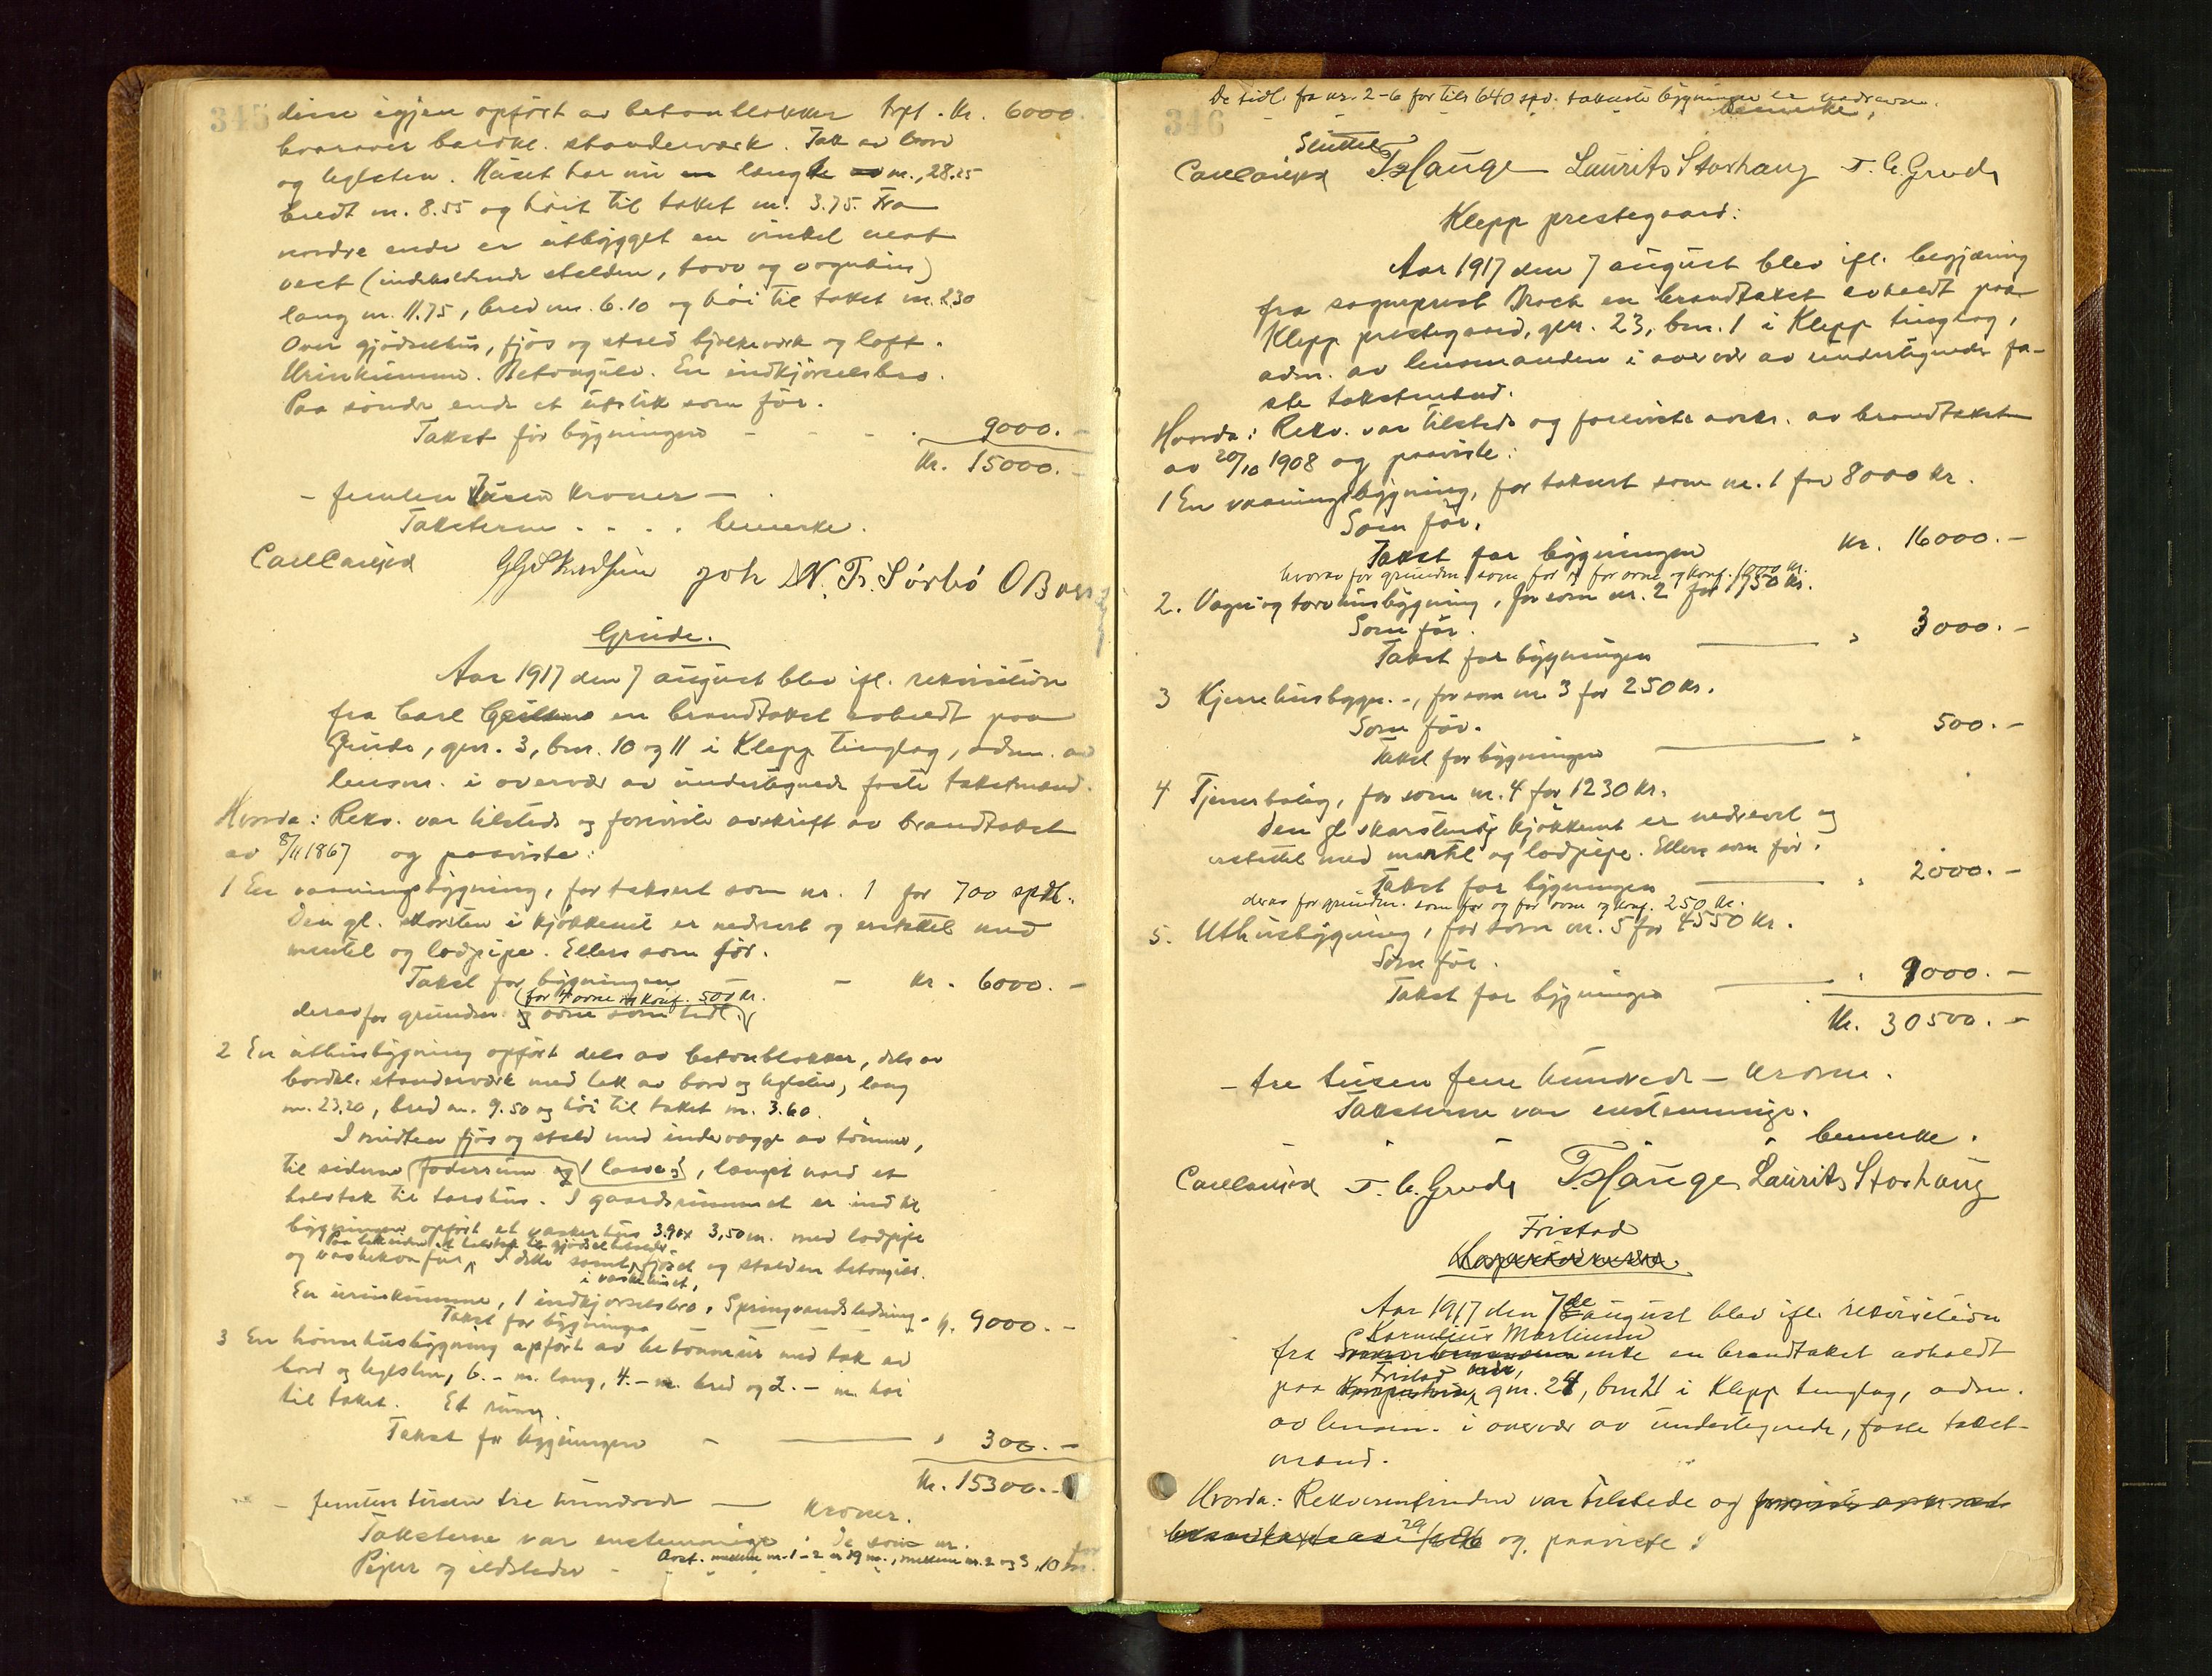 345
disse igjen opført av betonblokker trpt. Kr. 6000.
hvorover bordkl. standerværk. Tak av bord
og teglsten. Huset har nu en længde av m. 28.25
bredt m. 8.55 og høit til taket m. 3.75. Fra
nordre ende er utbygget en vinkel mot
vest (indeholdende stalden, torv og vognhus)
lang m. 11.75, bred m. 6.10 og høi til taket m. 2.30
Over gjødselhus, fjøs og stald bjelkeverk og loft.
Urinkumme. Betongulv. En indkjørselsbro.
Paa søndre ende et utstik som før.
Takst for bygningen - - - . 9000. -
Kr. 15000. -
- femten tusen kroner -
Taksterne . . . . bemerke.
Carl Carlsen Joh N. Tr. Sørbø O Bore
Grude.
Aar 1917 den 7 august blev ifl. rekvisition
fra Carl en brandtakst avholdt paa
Grude, gnr. 3, bnr. 10 og 11 i Klepp tinglag, adm. av
lensm. i overvær av undertegnede faste takstmænd.
Hvorda: Rekv. var tilstede og foreviste avskrift av brandtakst
av 8/11 1867 og paaviste:
1 En vaaningsbygning, før taksert som nr. 1 for 700 spdl.
Den gl. skorsten i kjøkkenet er nedrevet og erstattet med
mantel og lodpipe. Ellers som før.
Takst for bygningen - Kr. 6000. -
(for 4 ovne og komf. 500 kr.
derav for grunden og ovne som tidl.)
2 En uthusbygning opført dels av betonblokker, dels av
bordkl. standerværk med tak av bord og teglsten, lang
m. 23.20, bred m. 9.50 og høi til taket m. 3.60.
I midten fjøs og stald med indervægge av tømmer,
til siderne foderrum og 1 laave, længst nord et
halvtak til torvhus. I gaardsrummet er ind til
bygningen opført et vaskerhus 3.90 x 3,50 m. med lodpipe
Paa et halvtak til gjødsel
og vaskekomfur. I dette samt fjøset og stalden betongulv.
i vaskehuset,
En urinkumme, 1 indkjørselsbro. Springvandsledning.
Takst for bygningen " 9000. -
3 En hønsehusbygning opført av betonmur med tak av
bord og teglsten, 6. - m. lang, 4. - m. bred og 2. - m. høi
til taket. Et rum.
Takst for bygningen - " 300. -
Kr. 15300. -
- femten tusen tre hundrede - kroner.
Taksterne var enstemmige. De som nr. før
Avst. mellem nr. 1 - 2 er 19 m., mellem nr. 2 og 3, 10 m.
Piper og ildsteder - " "
346
De tidl. fra nr. 2-6 for tils 640 spd. takserte bygninger er nedrevne.
- - - - bemerke,
Sluttet
Carl Carlsen T. Hauge Laurits Storhaug T. G. Grude
Klepp prestegaard:
Aar 1917 den 7 august blev ifl. begjæring
fra sogneprest Broch en brandtakst avholdt paa
Klepp prestegaard, gnr. 23, bnr. 1 i Klepp tinglag,
adm. av lensmanden i overvær av undertegnede fa-
ste takstmænd.
Hvorda: Rekv. var tilstede og foreviste avskr. av brandtakst
av 20/10 1908 og paaviste:
1 En vaaningsbygning, før taksert som nr. 1 for 8000 kr.
Som før.
Takst for bygningen Kr. 16000. -
hvorav for grunden som før og for ovne og komf. 1000 kr.
2. Vogn og torvhusbygning, før som nr. 2 for 1950 kr.
Som før.
Takst for bygningen " 3000. -
3 Kjerrehusbygn. -, før som nr. 3 for 250 kr.
Som før.
Takst for bygningen " 500. -
4 Tjenerbolig, før som nr. 4 for 1230 kr.
Den gl. skorsten i kjøkkenet er nedrevet og
erstattet med mantel og lodpipe. Ellers som før.
Takst for bygningen " 2000. -
derav for grunden som før og for ovne og komf. 250 kr.
5. Uthusbygning, før som nr. 5 for 4550 kr.
Som før.
Takst for bygningen " 9000. -
Kr. 30500. -
- tre tusen fem hundrede - kroner.
Taksterne var enstemmige.
- " " " bemerke.
Carl Carlsen T. G. Grude T. Hauge Laurits Storhaug
Fristad
Aar 1917 den 7de august blev ifl. rekvisition
Kornelius Martinsen
fra enke en brandtakst avholdt
Fristad nedr,
paa gnr. 24, bnr. 21 i Klepp tinglag, adm.
av lensm. i overvær av undertegnede, faste takst-
mænd.
Hvorda: Rekvirentinden var tilstede og foreviste avskr. av
brandtakst av 29/ og paaviste: